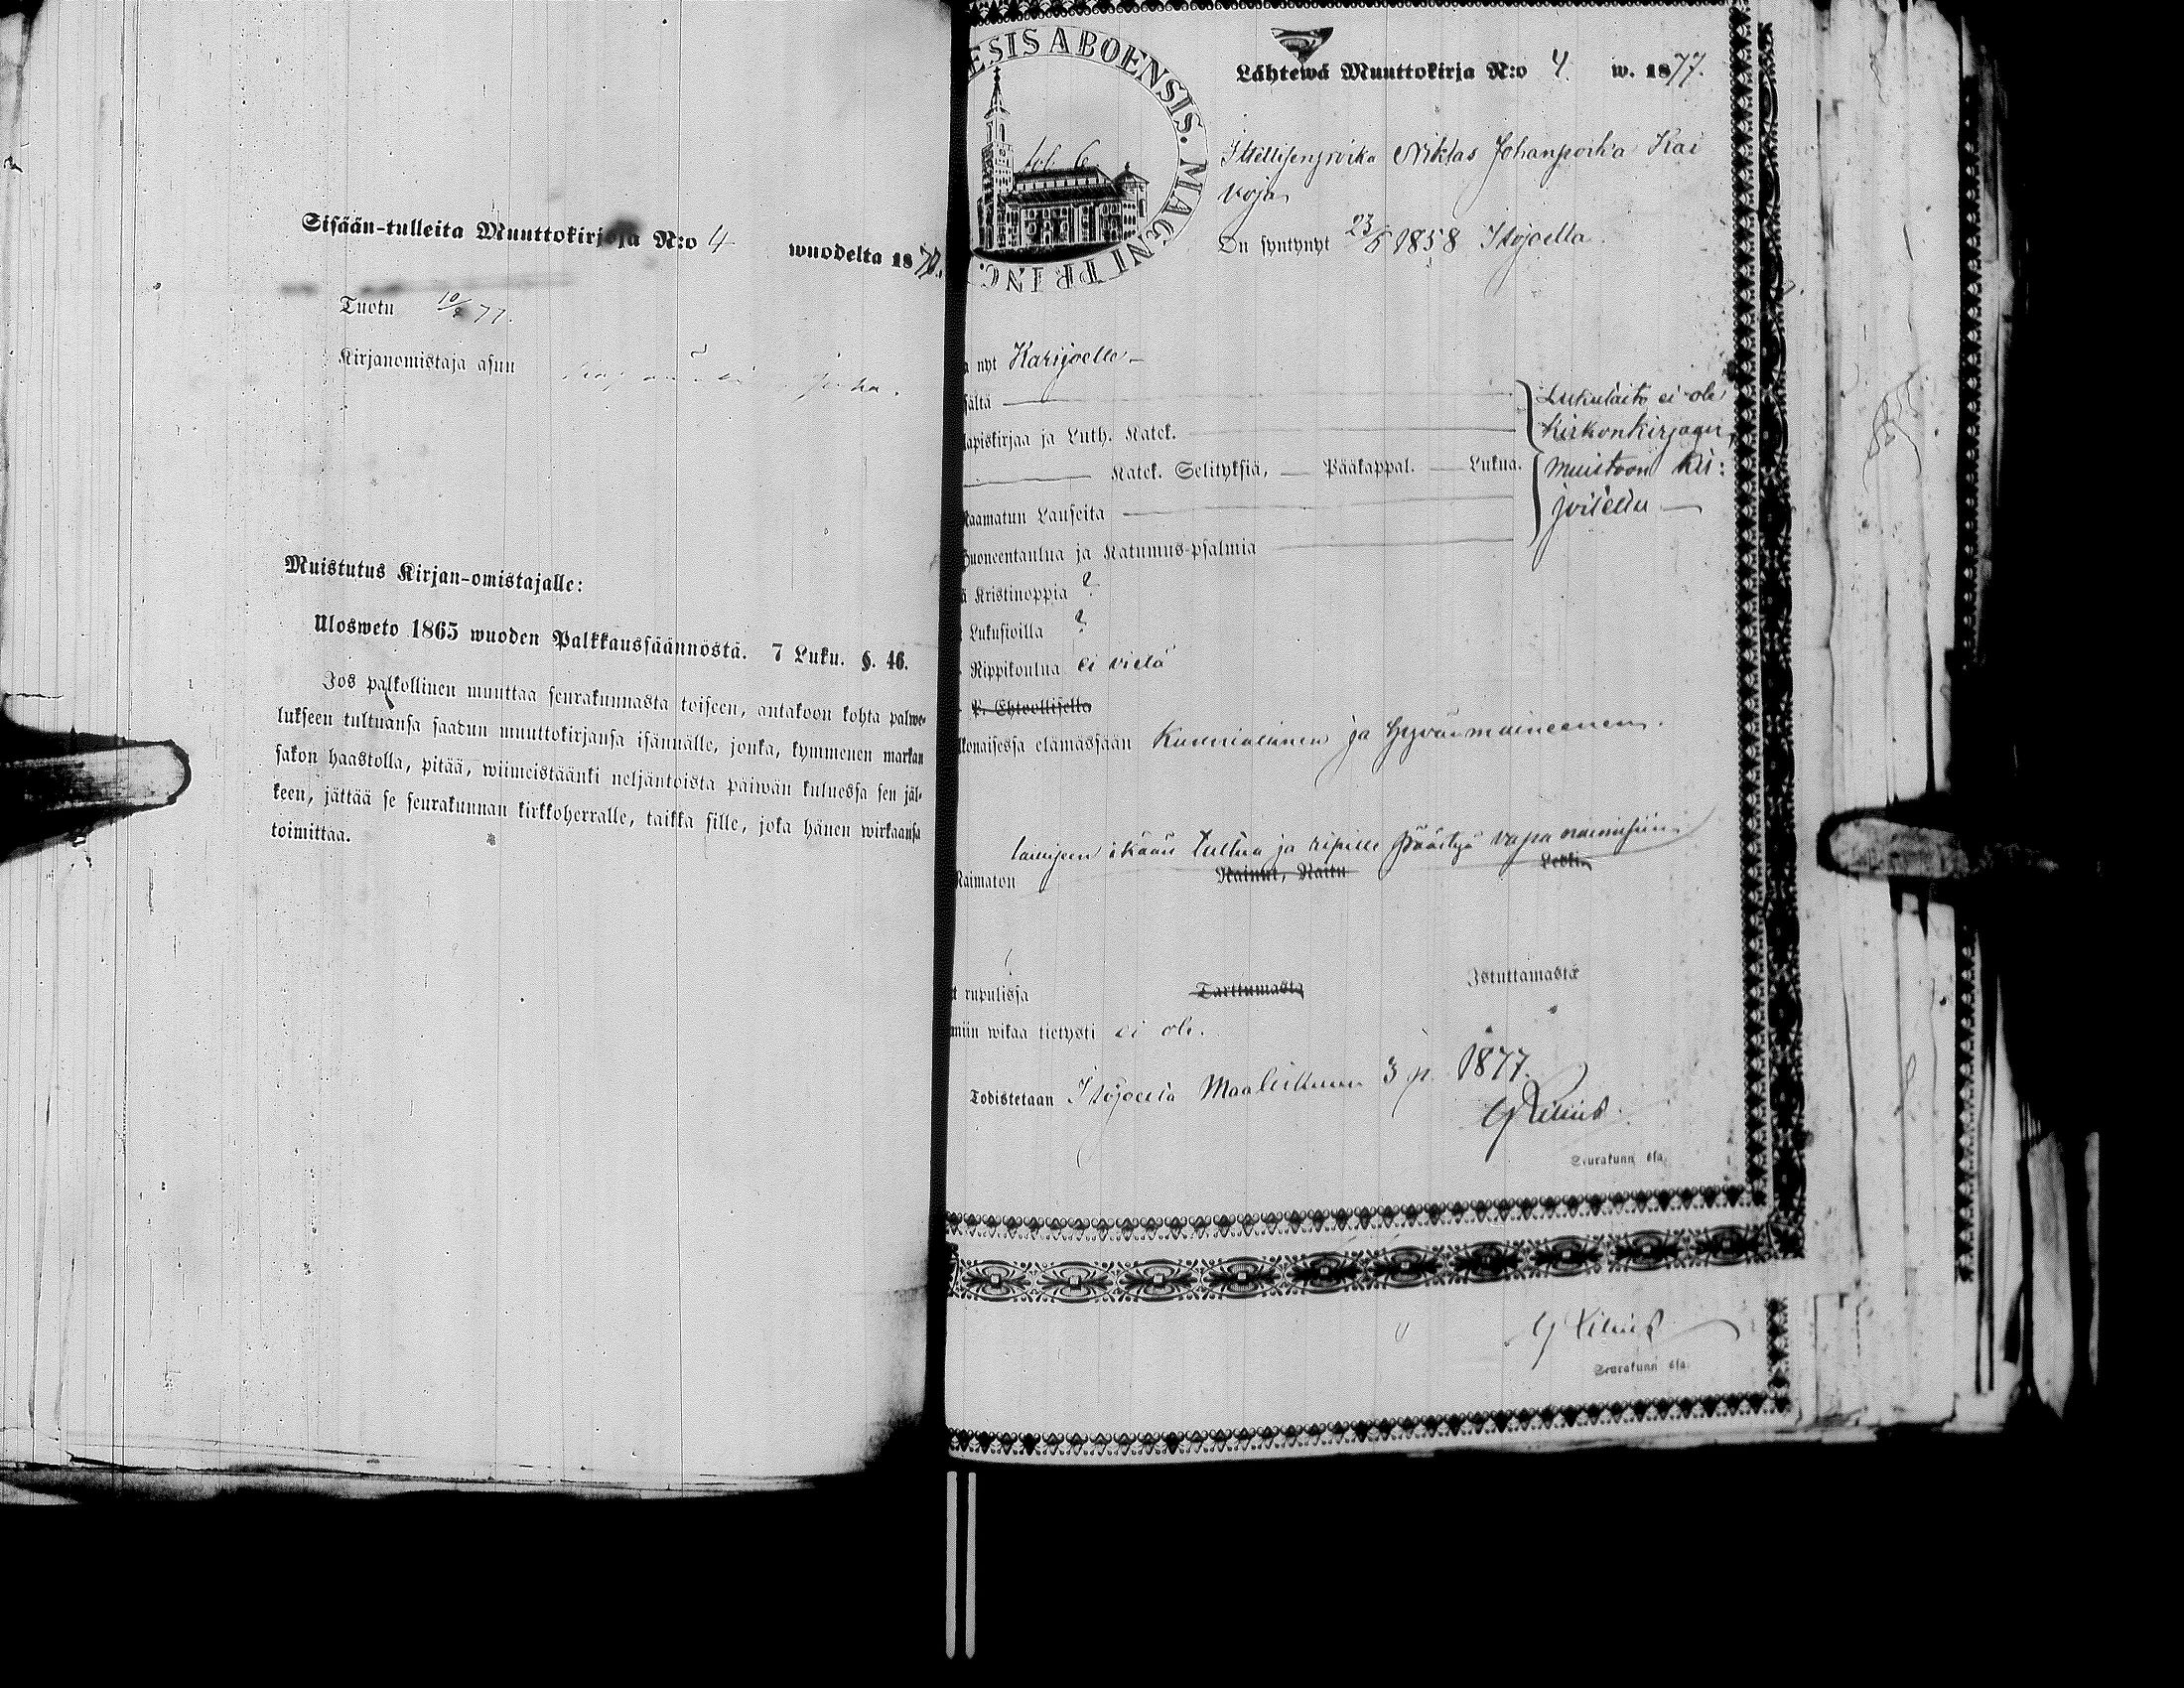 Sisään-tulleita Muuttokirjoja N:o 4 wuodelta 1877.
Tuotu 10/3 77.
Kirjanomistaja asuu
Muistutus Kirjan-omistajalle:
Ulosweto 1865 wuoden Palkkaussäännöstä. 7 Luku. §. 46.
Jos palkollinen muuttaa seurakunnasta toiseen, antakoon kohta palwe-
lukseen tultuansa saadun muuttokirjansa isännälle, jonka, kymmenen markan
sakon haastolla, pitää, wiimeistäänki neljäntoista päiwän kuluessa sen jäl-
keen, jättää se seurakunnan kirkkoherralle, taikka sille, joka hänen wirkaansa
toimittaa.
ESIS ABOENSIS. MAGNI PRINC.
fol. 6
Lähtewä Muuttokirja N:o 4. w. 1877.
Itsellisenpoika Niklas Johanpoika Kai
voja
On syntynyt 23/5 1858 Isojoella.
nyt Karijoelle
sältä
apiskirjaa ja Luth. Katek.
Katek. Selityksiä, Pääkappal. Lukua.
Raamatun Lauseita
Huoneentaulua ja Katumus-psalmia
Lukutaito ei ole
Kirkonkirjaan
muistoon kir:
joitettu
Kristinoppia ?
Lukusioilla ?
Rippikoulua ei vielä
P. Ehtoollisella
lkonaisessa elämässään Kunniallinen ja hyvämaineenen.
lailliseen ikään tultua ja ripille päästyä vapa naimisiin
Naimaton Nainut, Naitu Leski
t rupulissa Tarttumasta Istuttamasta
miin wikaa tietysti ei ole.
Todistetaan Isojoella Maaliskuun 3 p. 1877.
Seurakunn
Seurakunn